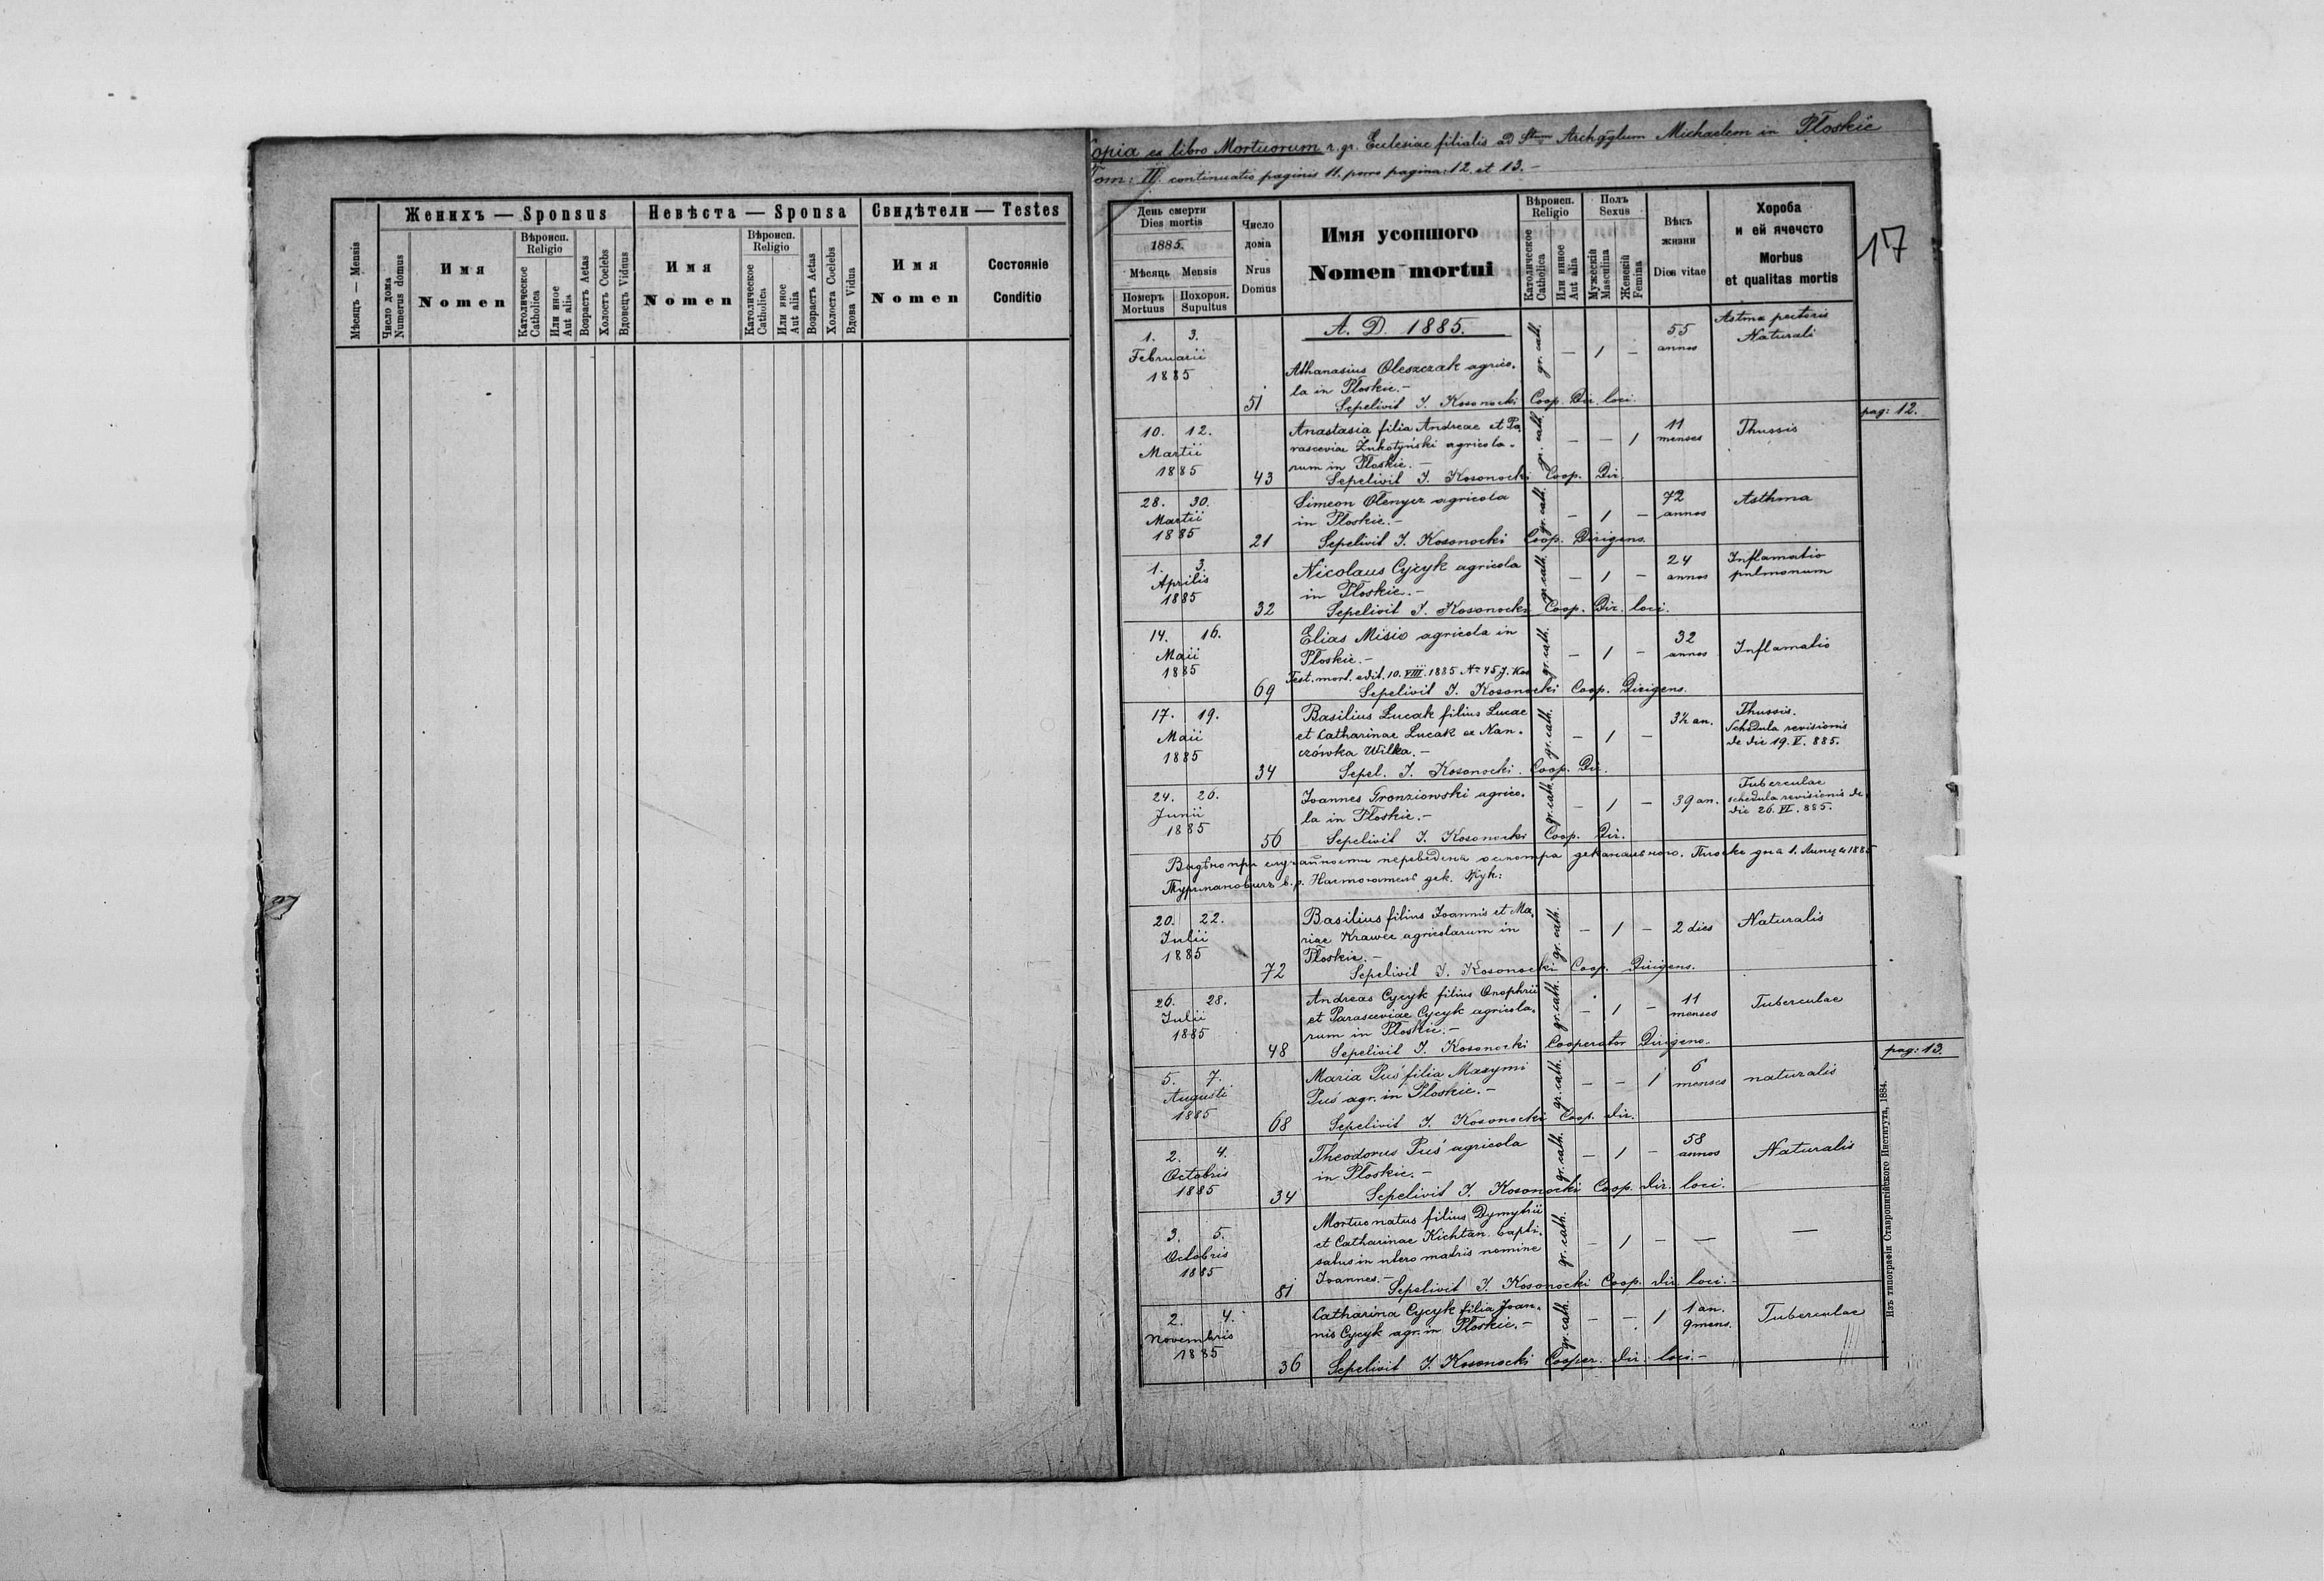 Женихъ — Sponsus
Невѣста — Sponsa
Свидѣтели — Testes
Мѣсяць — Mensis
Число дома
Numerus domus
Имя
Nomen
Вѣроисп.
Religio
Католическое
Catholica
Или иное
Aut alia
Возрастъ Aetas
Холостъ Coelebs
Вдовецъ Viduus
Имя
Nomen
Вѣроисп.
Religio
Католическое
Catholica
Или иное
Aut alia
Возрастъ Aetas
Холоста Coelebs
Вдова Vidua
Имя
Nomen
Состояніе
Conditio
Copia ex libro Mortuorum r. gr. Ecclesiae filialis ad Stum Archgglum Michaelem in Płoskie
Tom: II. continuatio paginis 11. porro pagina: 12. et 13. –
17
День смерти
Dies mortis
1885.
Мѣсяць Mensis
Померъ
Mortuus
Похорон.
Supultus
Число
дома
Nrus
Domus
Имя усопшого
Nomen mortui
Вѣроисп.
Religio
Католическое
Catholica
Или инное
Aut alia
Полъ
Sexus
Мужескій
Masculina
Женскій
Femina
Вѣкъ
жизни
Dies vitae
Хороба
и ей ячечсто
Morbus
et qualitas mortis
A. D. 1885.
1. 3.
Februarii
1885
51
Athanasius Oleszczak agrico-
la in Płoskie. –
Sepelivit J. Kosonocki Coop. Dir. loci.
gr. cath.
– 1 –
55
annos
Astma pectoris
Naturali
pag: 12.
10. 12.
Martii
1885
43
Anastasia filia Andreae et Pa-
rasceviae Żukotyński agricola-
rum in Płoskie. –
Sepelivit J. Kosonocki Coop. Dir.
gr. cath.
– – 1
11
menses
Thussis
28. 30.
Martii
1885
21
Simeon Olenycz agricola
in Płoskie. –
Sepelivit J. Kosonocki Coop. Dirigens.
gr. cath.
– 1 –
72
annos
Asthma
1. 3.
Aprilis
1885
32
Nicolaus Cycyk agricola
in Płoskie. –
Sepelivit J. Kosonocki Coop. Dir. loci.
gr. cath.
– 1 –
24
annos
Inflamatio
pulmonum
14. 16.
Maii
1885
69
Elias Misio agricola in
Płoskie. –
Test. mort. edit. 10. VIII. 1885 № 45 J. Kos
Sepelivit J. Kosonocki Coop. Dirigens.
gr. cath.
– 1 –
32
annos
Inflamatio
17. 19.
Maii
1885
34
Basilius Lucak filius Lucae
et Catharinae Lucak ex Nan-
czówka Wilka. –
Sepel. J. Kosonocki. Coop. Dir.
gr. cath.
– 1 –
34 an.
Thussis.
Schedula revisionis
de die 19. V. 885.
24. 26.
Junii
1885
56
Joannes Gronziowski agrico-
la in Płoskie. –
Sepelivit J. Kosonocki Coop. Dir.
gr. cath.
– 1 –
39 an.
Tuberculae
schedula revisionis de
die 26. VI. 885.
Видѣно при случайности переведена осмотра деканального. Плоске дня 1. Липця 1885
в. р. дек.
20. 22.
Julii
1885
72
Basilius filius Joannis et Ma-
riae Krawec agricolarum in
Płoskie. –
Sepelivit J. Kosonocki Coop. Dirigens.
gr. cath.
– 1 –
2 dies
Naturalis
26. 28.
Julii
1885
48
Andreas Cycyk filius Onophrii
et Parasceviae Cycyk agricola-
rum in Płoskie. –
Sepelivit J. Kosonocki Cooperator Dirigens.
gr. cath.
– 1 –
11
menses
Tuberculae
pag: 13.
5. 7.
Augusti
1885
68
Maria Puś filia Maxymi
Puś agr. in Płoskie. –
Sepelivit J. Kosonocki Coop. dir.
gr. cath.
– – 1
6
menses
naturalis
2. 4.
Octobris
1885
34
Theodorus Puś agricola
in Płoskie. –
Sepelivit J. Kosonocki Coop. dir. loci.
gr. cath.
– 1 –
58
annos
Naturalis
3. 5.
Octobris
1885
81
Mortuo natus filius Dymytrii
et Catharinae Kichtan. bapti-
satus in utero matris nomine
Joannes. –
Sepelivit J. Kosonocki Coop. dir. loci. –
gr. cath.
– 1 – – –
2. 4.
Novembris
1885
36
Catharina Cycyk filia Joan-
nis Cycyk agr. in Płoskie. –
Sepelivit J. Kosonocki Cooper. dir. loci. –
gr. cath.
– – 1
1 an.
9 mens.
Tuberculae
Изъ типографіи Ставропигійского Института, 1884.